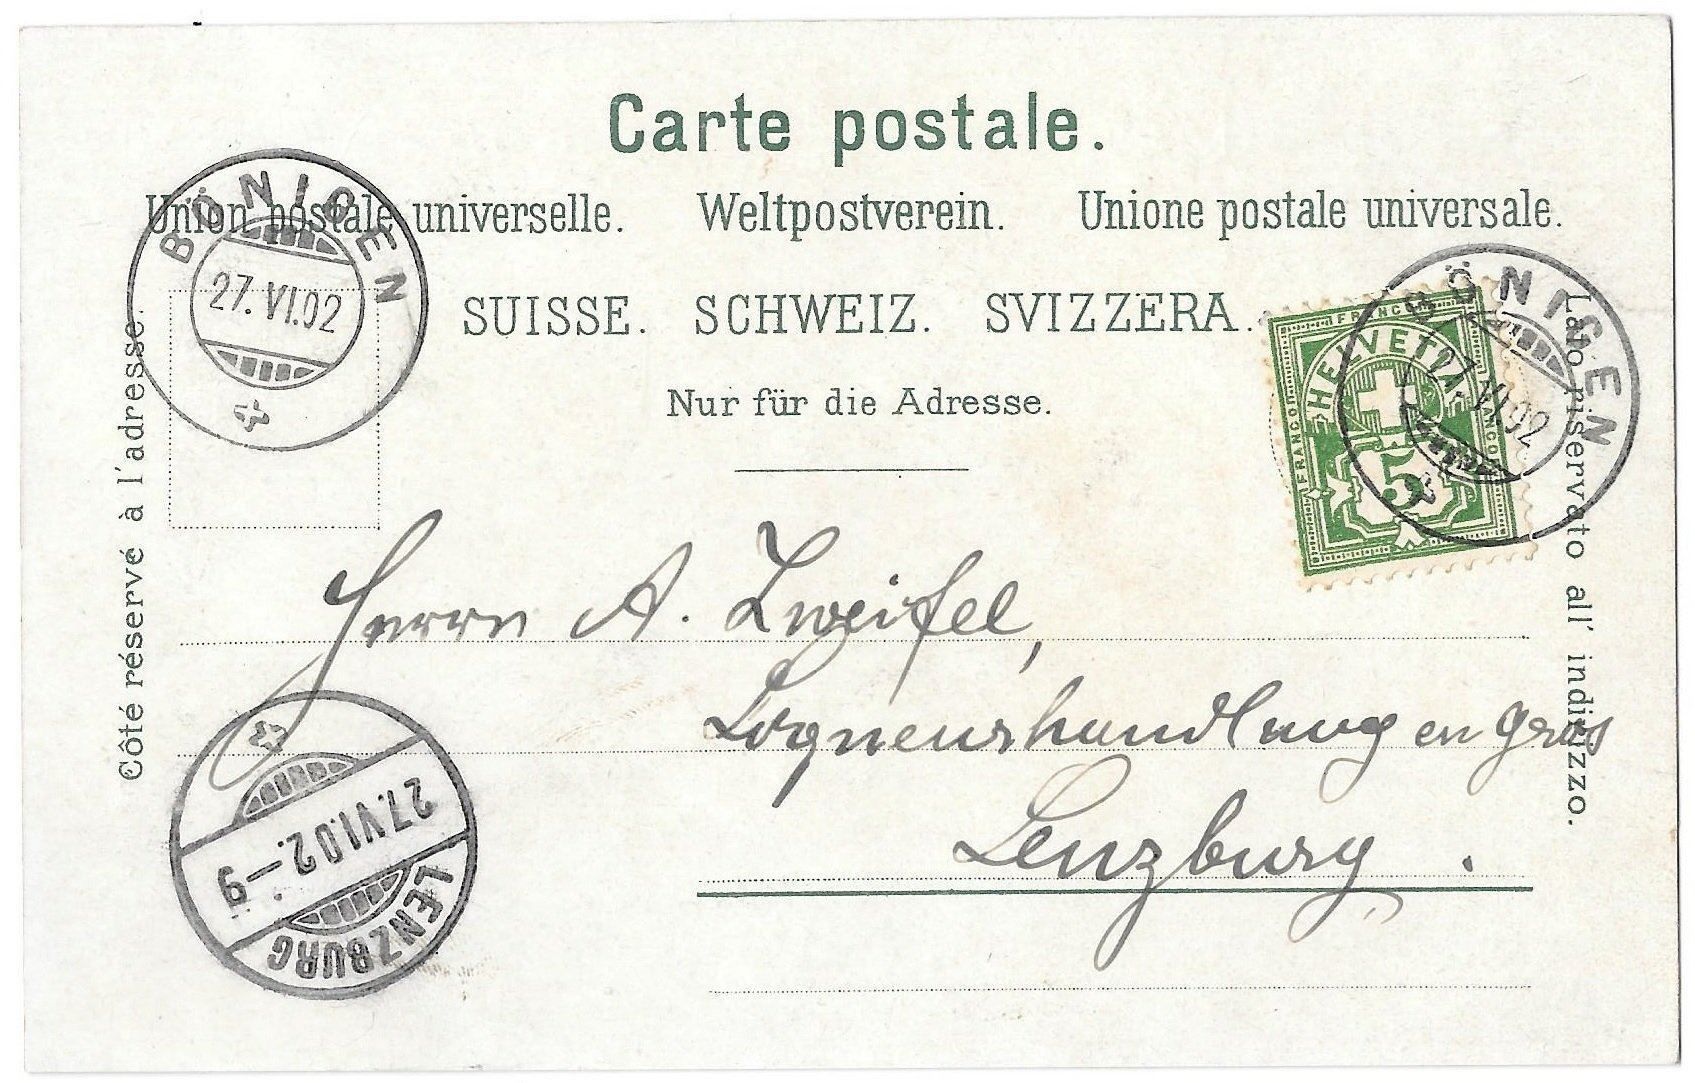 Carte postale.
Union postale universelle. Weltpostverein. Unione postale universale.
SUISSE. SCHWEIZ. SVIZZERA.
Nur für die Adresse.
Côté réservé à l'adresse.
Lato riservato all' indirizzo.
BÖNIGEN
27. VI. 02
BÖNIGEN
27. VI. 02
FRANCO
HELVETIA
FRANCO
FRANCO
5
Herrn A. Zweifel,
Liqueurshandlung en gros
Lenzburg.
27. VI. 02. – 9
LENZBURG